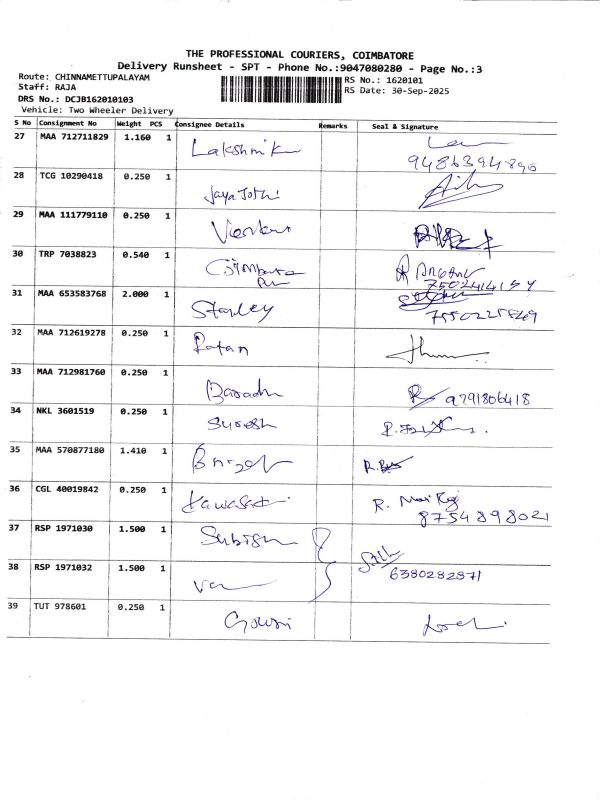 THE PROFESSIONAL COURIERS, COIMBATORE
Delivery Runsheet - SPT - Phone No.:9047080280 - Page No.:3
Route: CHINNAMETTUPALAYAM
RS No.: 1620101
Staff: RAJA
RS Date: 30-Sep-2025
DRS No.: DCJB162010103
Vehicle: Two Wheeler Delivery
S No Consignment No Weight PCS Consignee Details Remarks Seal & Signature
27 MAA 712711829 1.160 1 Lakshmik
28 TCG 10290418 0.250 1 Jaya Jothi
29 MAA 111779110 0.250 1
30 TRP 7038823 0.540 1
31 MAA 653583768 2.000 1 Stanley
32 MAA 712619278 0.250 1 Ratan
33 MAA 712981760 0.250 1 9791806418
34 NKL 3601519 0.250 1 Suresh
35 MAA 570877180 1.410 1
36 CGL 40019842 0.250 1
8754898021
37 RSP 1971030 1.500 1
38 RSP 1971032 1.500 1 6380282871
39 TUT 978601 0.250 1 Gowri